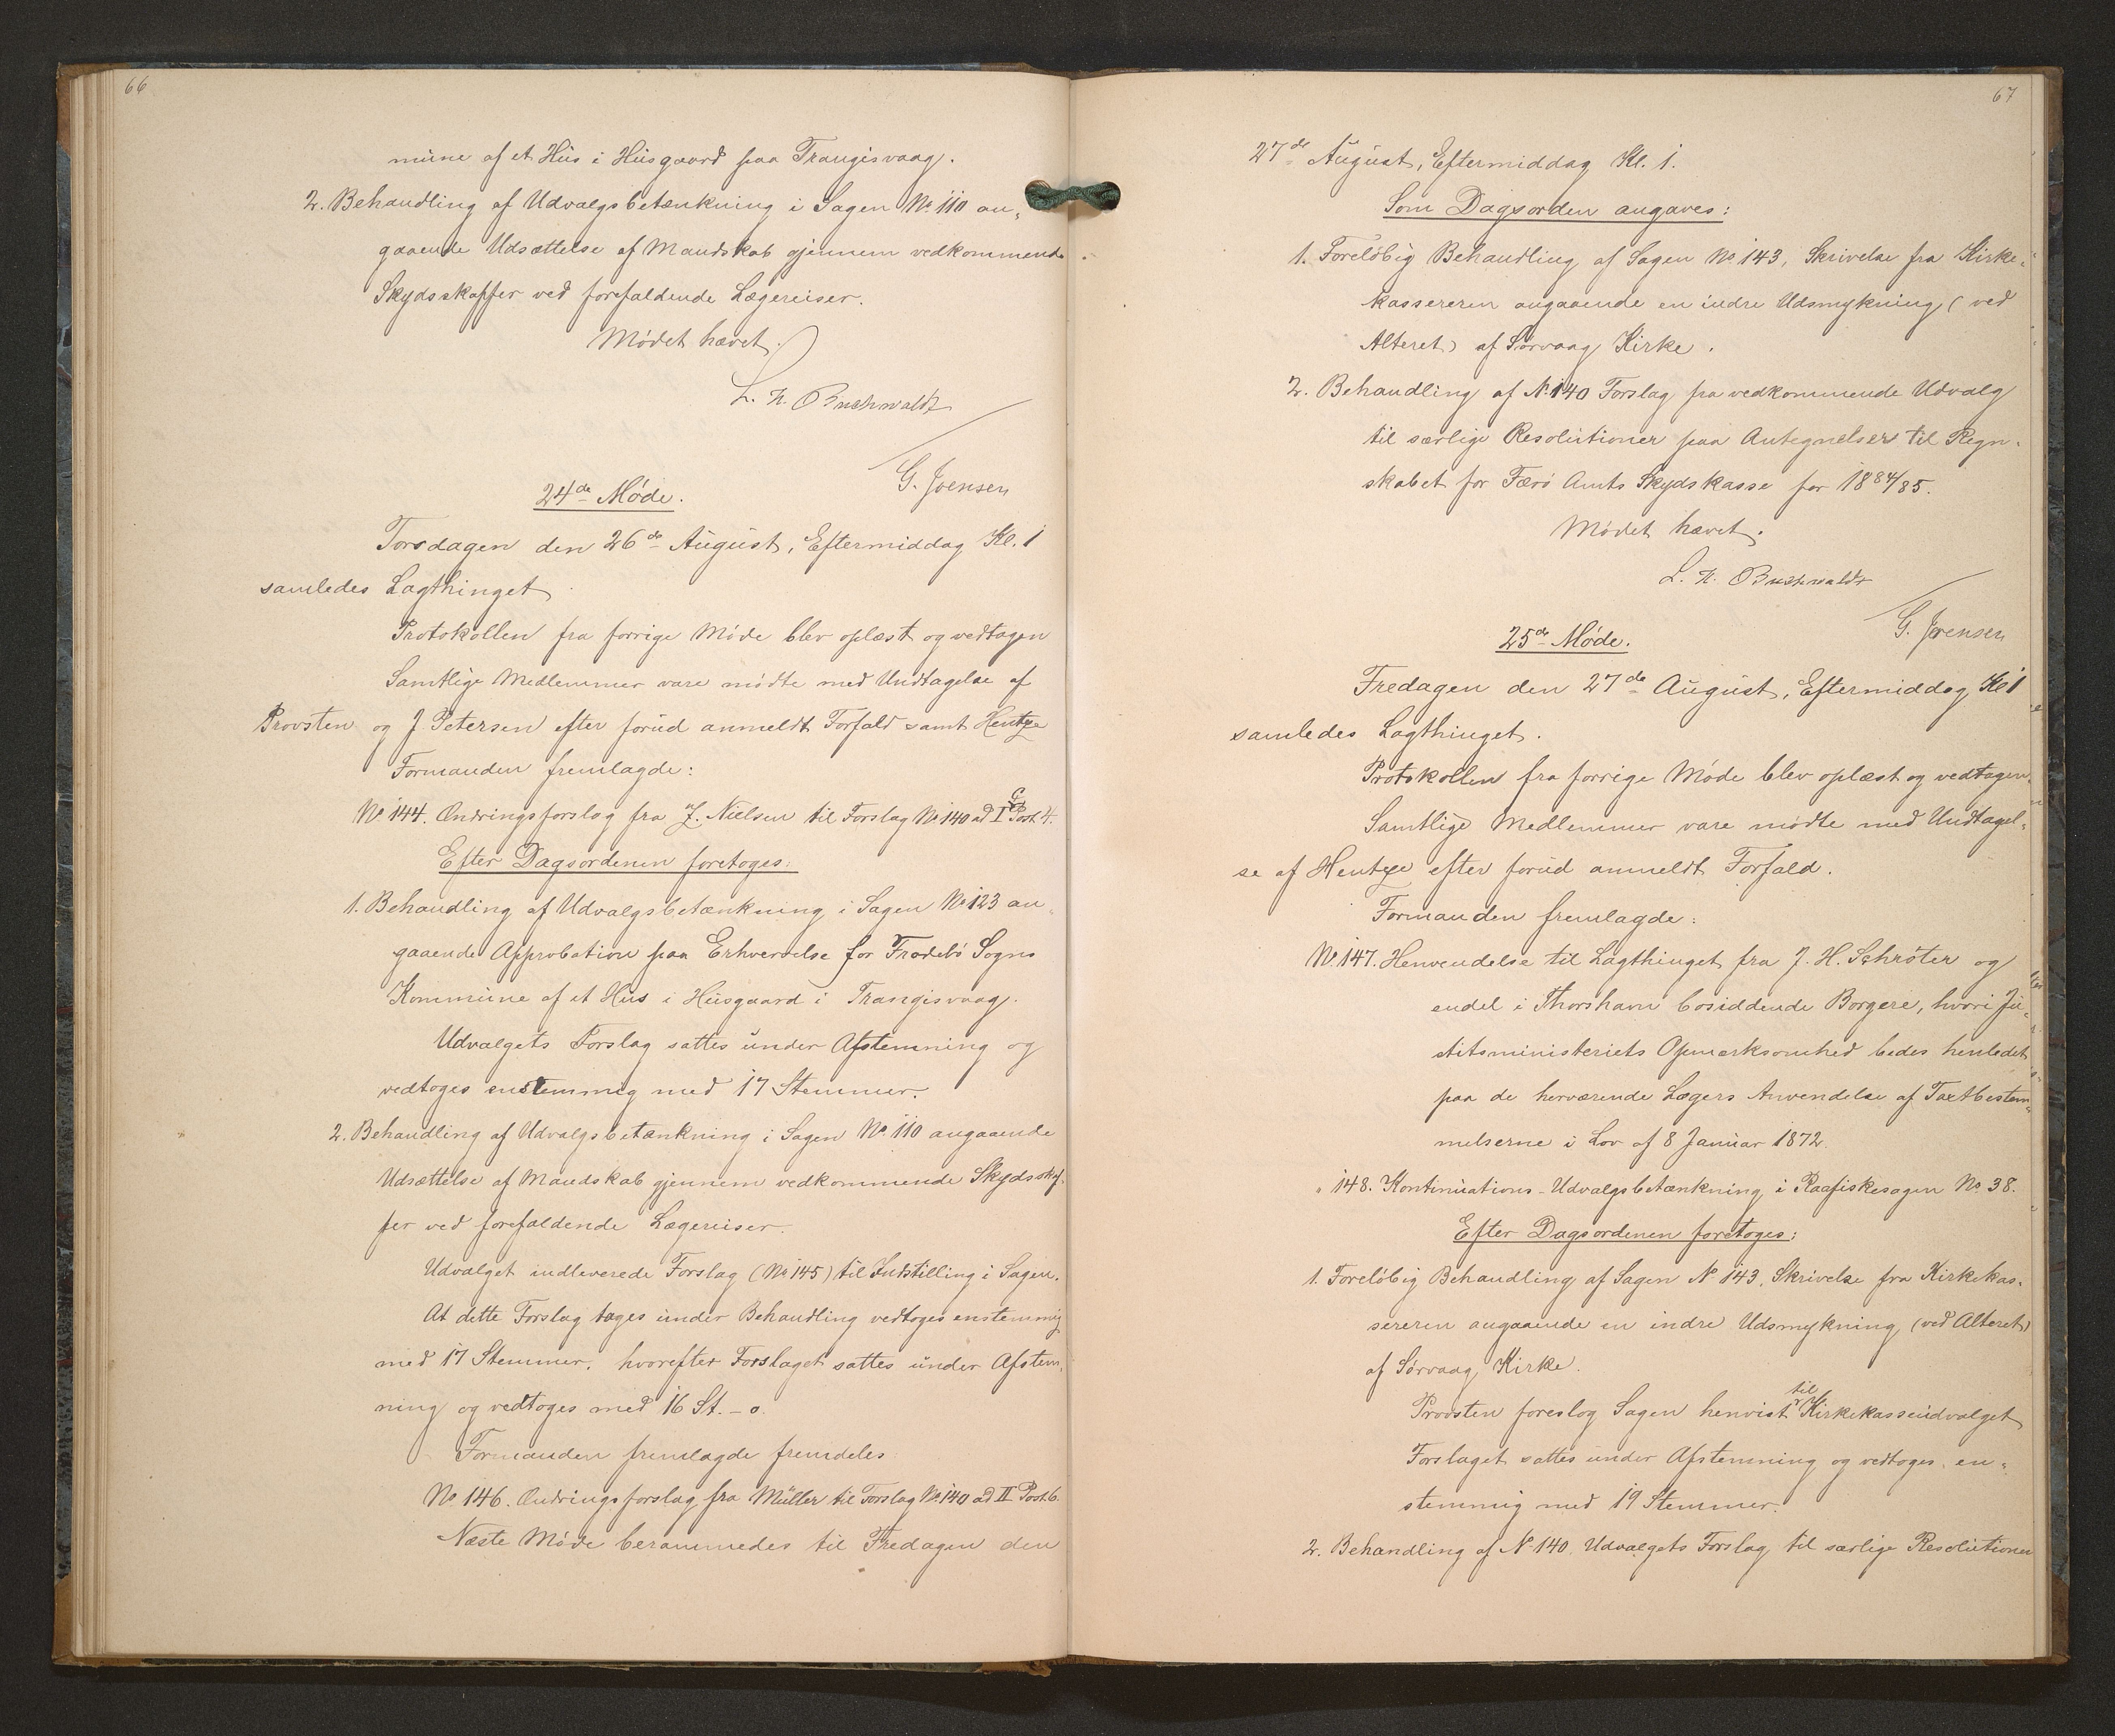 66
mune af et Hus i Husgaard paa Trangisvaag.
2. Behandling af Udvalgsbetænkning i Sagen No. 110 an-
gaaende Udsættelse af Mandskab gjennem vedkommende
Skydsskaffer ved forefaldende Lægereiser.
Mødet hævet.
L. H. Buchwaldt
G. Joensen
24de Møde.
Torsdagen den 26de August, Eftermiddag Kl. 1
samledes Lagthinget
Protokollen fra forrige Møde blev oplæst og vedtagen
Samtlige Medlemmer vare mødte med Undtagelse af
Provsten og J. Petersen efter forud anmeldt Forfald samt Hentze
Formanden fremlagde:
No. 144. Ændringsforslag fra J. Nielsen til Forslag No. 140 ad I Post 4.
Efter Dagsordenen foretoges:
1. Behandling af Udvalgsbetænkning i Sagen No. 123 an-
gaaende Approbation paa Erhvervelse for Frodebø Sogns
Kommune af et Hus i Husgaard i Trangisvaag.
Udvalgets Forslag sattes under Afstemning og
vedtoges enstemmig med 17 Stemmer.
2. Behandling af Udvalgsbetænkning i Sagen No. 110 angaaende
Udsættelse af Mandskab gjennem vedkommende Skydsskaf-
fer ved forefaldende Lægereiser.
Udvalget indleverede Forslag (No. 145) til Indstilling i Sagen.
At dette Forslag tages under Behandling vedtoges enstemmig
med 17 Stemmer, hvorefter Forslaget sattes under Afstem-
ning og vedtoges med 16 St. - 0.
Formanden fremlagde fremdeles
No. 146. Ændringsforslag fra Müller til Forslag No. 140 ad II Post 6.
Næste Møde berammedes til Fredagen den
67
27de August, Eftermiddag Kl. 1.
Som Dagsorden angaves:
1. Foreløbig Behandling af Sagen No. 143, Skrivelse fra Kirke-
kassereren angaaende en indre Udsmykning (ved
Alteret) af Sørvaag Kirke.
2. Behandling af No. 140 Forslag fra vedkommende Udvalg
til særlige Resolutioner paa Antegnelser til Regn-
skabet for Færø Amts Skydskasse for 1884/85.
Mødet hævet.
L. H. Buchwaldt
G. Joensen
25de Møde.
Fredagen den 27de August, Eftermiddag Kl 1
samledes Lagthinget.
Protokollen fra forrige Møde blev oplæst og vedtagen.
Samtlige Medlemmer vare mødte med Undtagel-
se af Hentze efter forud anmeldt Forfald.
Formanden fremlagde:
No. 147. Henvendelse til Lagthinget fra J. H. Schrøter og
endel i Thorshavn bosiddende Borgere, hvori Ju-
stitsministeriets Opmærksomhed bedes henledet
paa de herværende Lægers Anvendelse af Taxtbestem-
melserne i Lov af 8 Januar 1872.
" 148. Kontinuations-Udvalgsbetænkning i Raafiskesagen No. 38.
Efter Dagsordenen foretoges:
1. Foreløbig Behandling af Sagen No. 143, Skrivelse fra Kirkekas-
sereren angaaende en indre Udsmykning (ved Alteret)
af Sørvaag Kirke.
Provsten foreslog Sagen henvist til Kirkekasseudvalget
Forslaget sattes under Afstemning og vedtoges en-
stemmig med 19 Stemmer.
2. Behandling af No. 140. Udvalgets Forslag til særlige Resolutioner